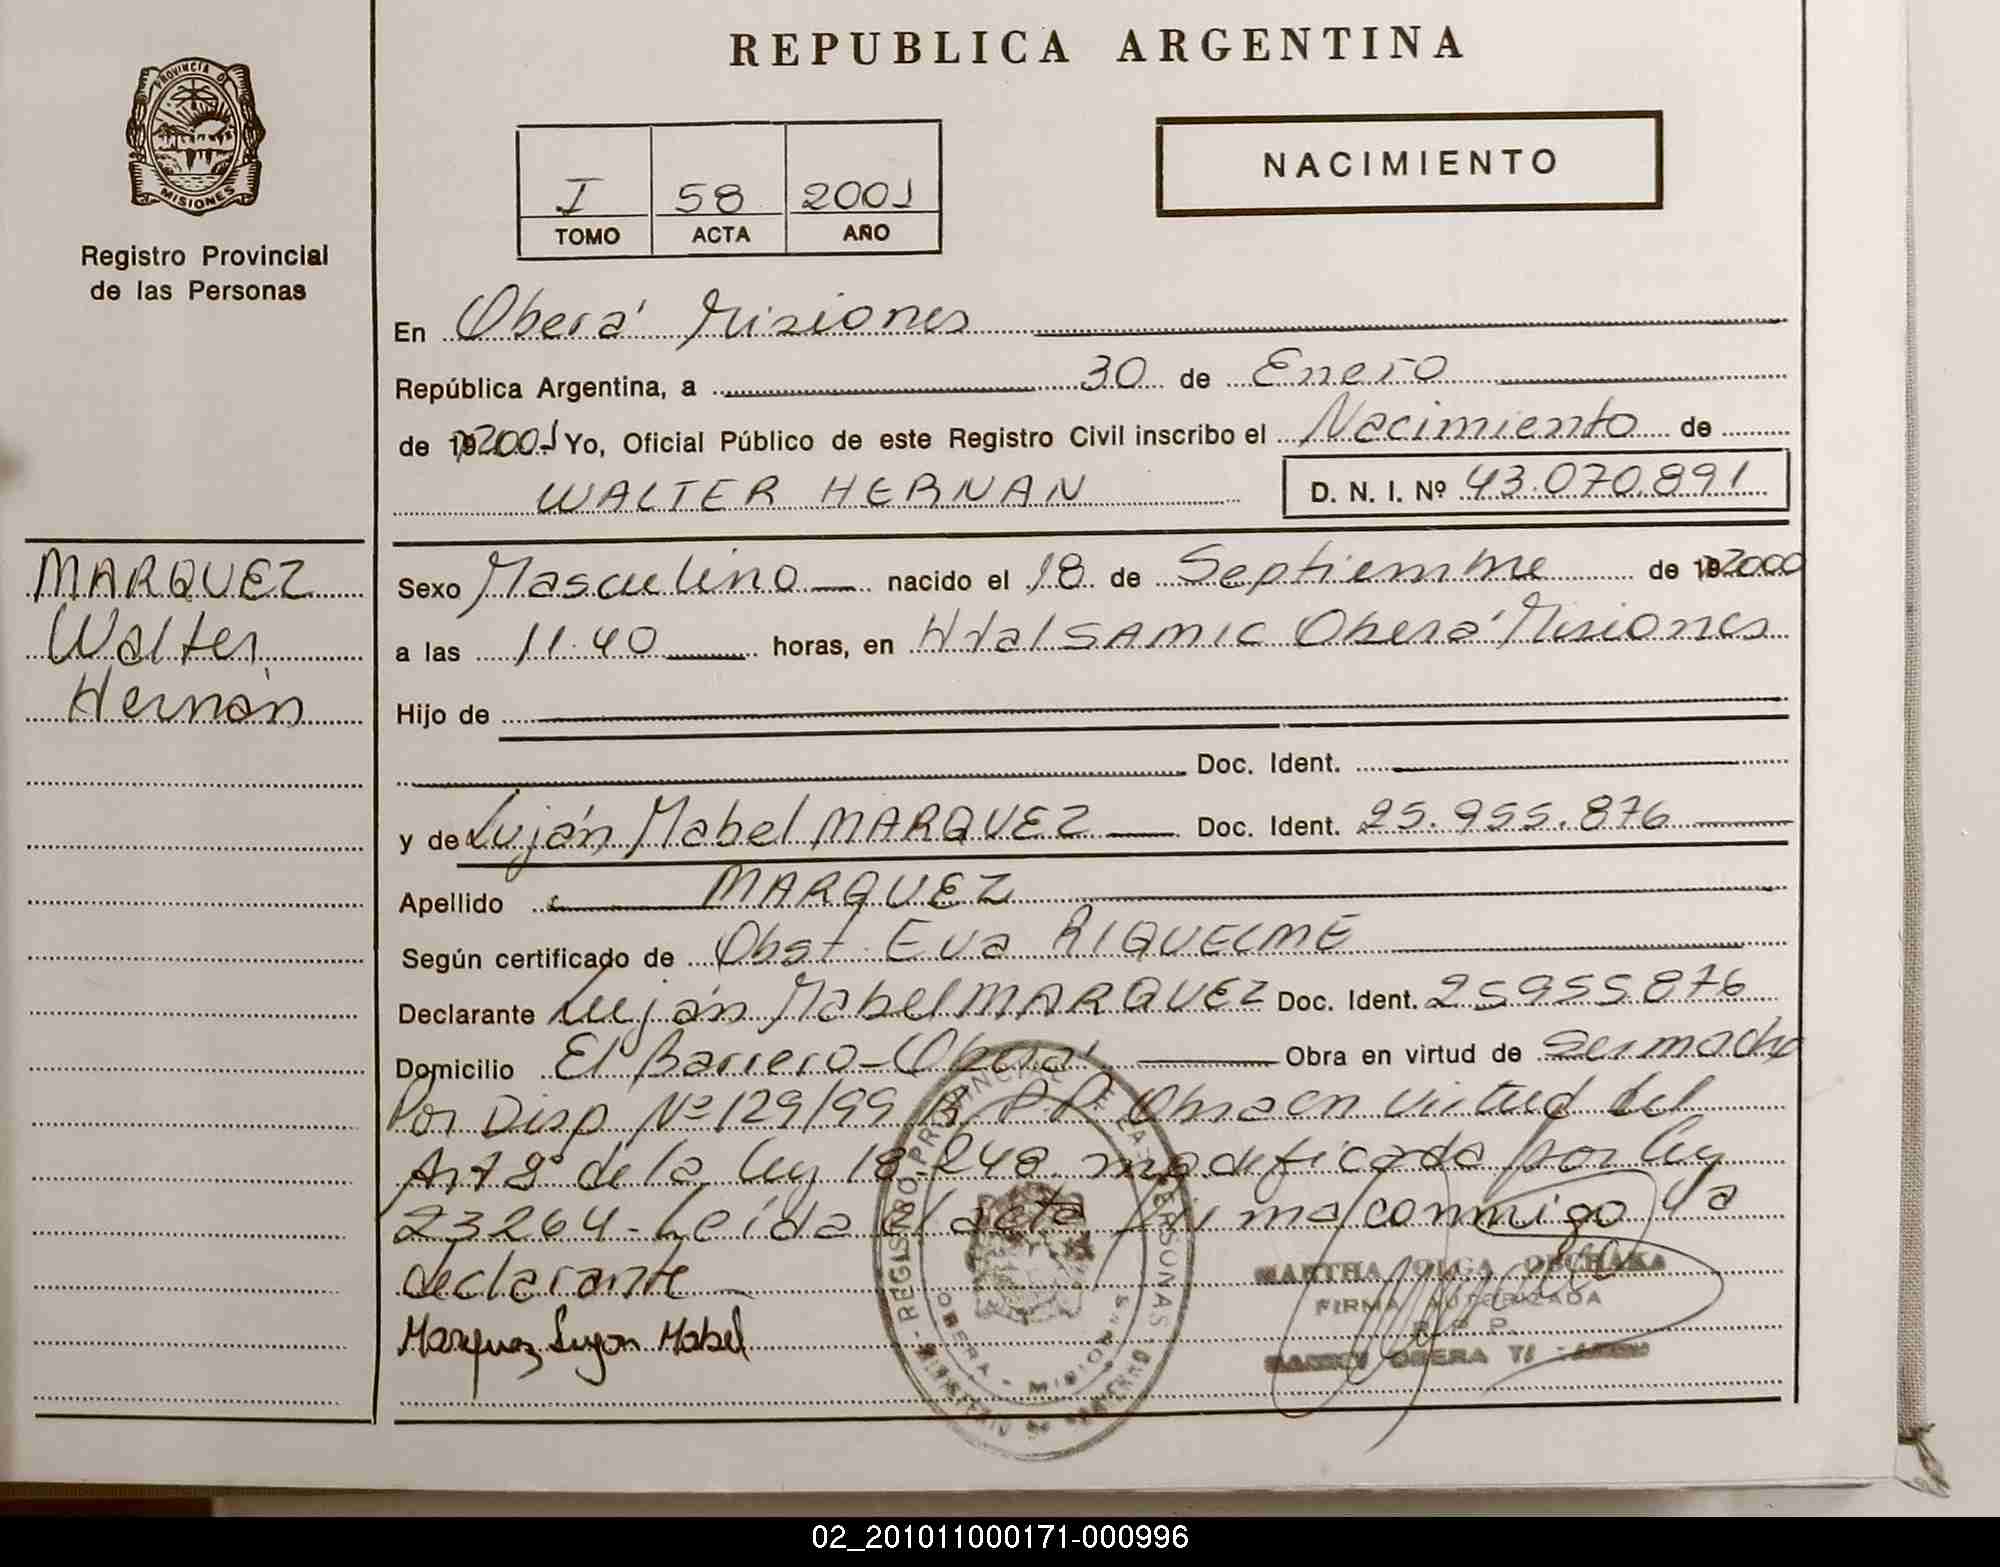 REPUBLICA ARGENTINA
PROVINCIA D
MISIONES
Registro Provincial
de las Personas
I 58 2001
TOMO ACTA AÑO
NACIMIENTO
En Oberá Misiones
República Argentina, a 30 de Enero
de 19 2001 Yo, Oficial Público de este Registro Civil inscribo el Nacimiento de
WALTER HERNAN D. N. I. Nº 43.070.891
MARQUEZ
Walter
Hernán
Sexo Masculino nacido el 18 de Septiembre de 19 2000
a las 11.40 horas, en Htal SAMIC Oberá Misiones
Hijo de
Doc. Ident.
y de Luján Mabel MARQUEZ Doc. Ident. 25.955.876
Apellido MARQUEZ
Según certificado de Obst. Eva RIQUELME
Declarante Luján Mabel MARQUEZ Doc. Ident. 25955876
Domicilio El Barrero - Oberá Obra en virtud de
Por Disp Nº 129/99 R.P.P. Obra en virtud del
Art 2º de la ley 18.248 modificada por ley
23264 - Leída el acta firma conmigo la
declarante
Marquez Lujan Mabel
REGISTRO PROVINCIAL DE LAS PERSONAS
OBERA - MISIONES
MINISTERIO DE GOBIERNO
MARTHA OLGA
FIRMA AUTORIZADA
R. P. P.
OBERA
02_201011000171-000996